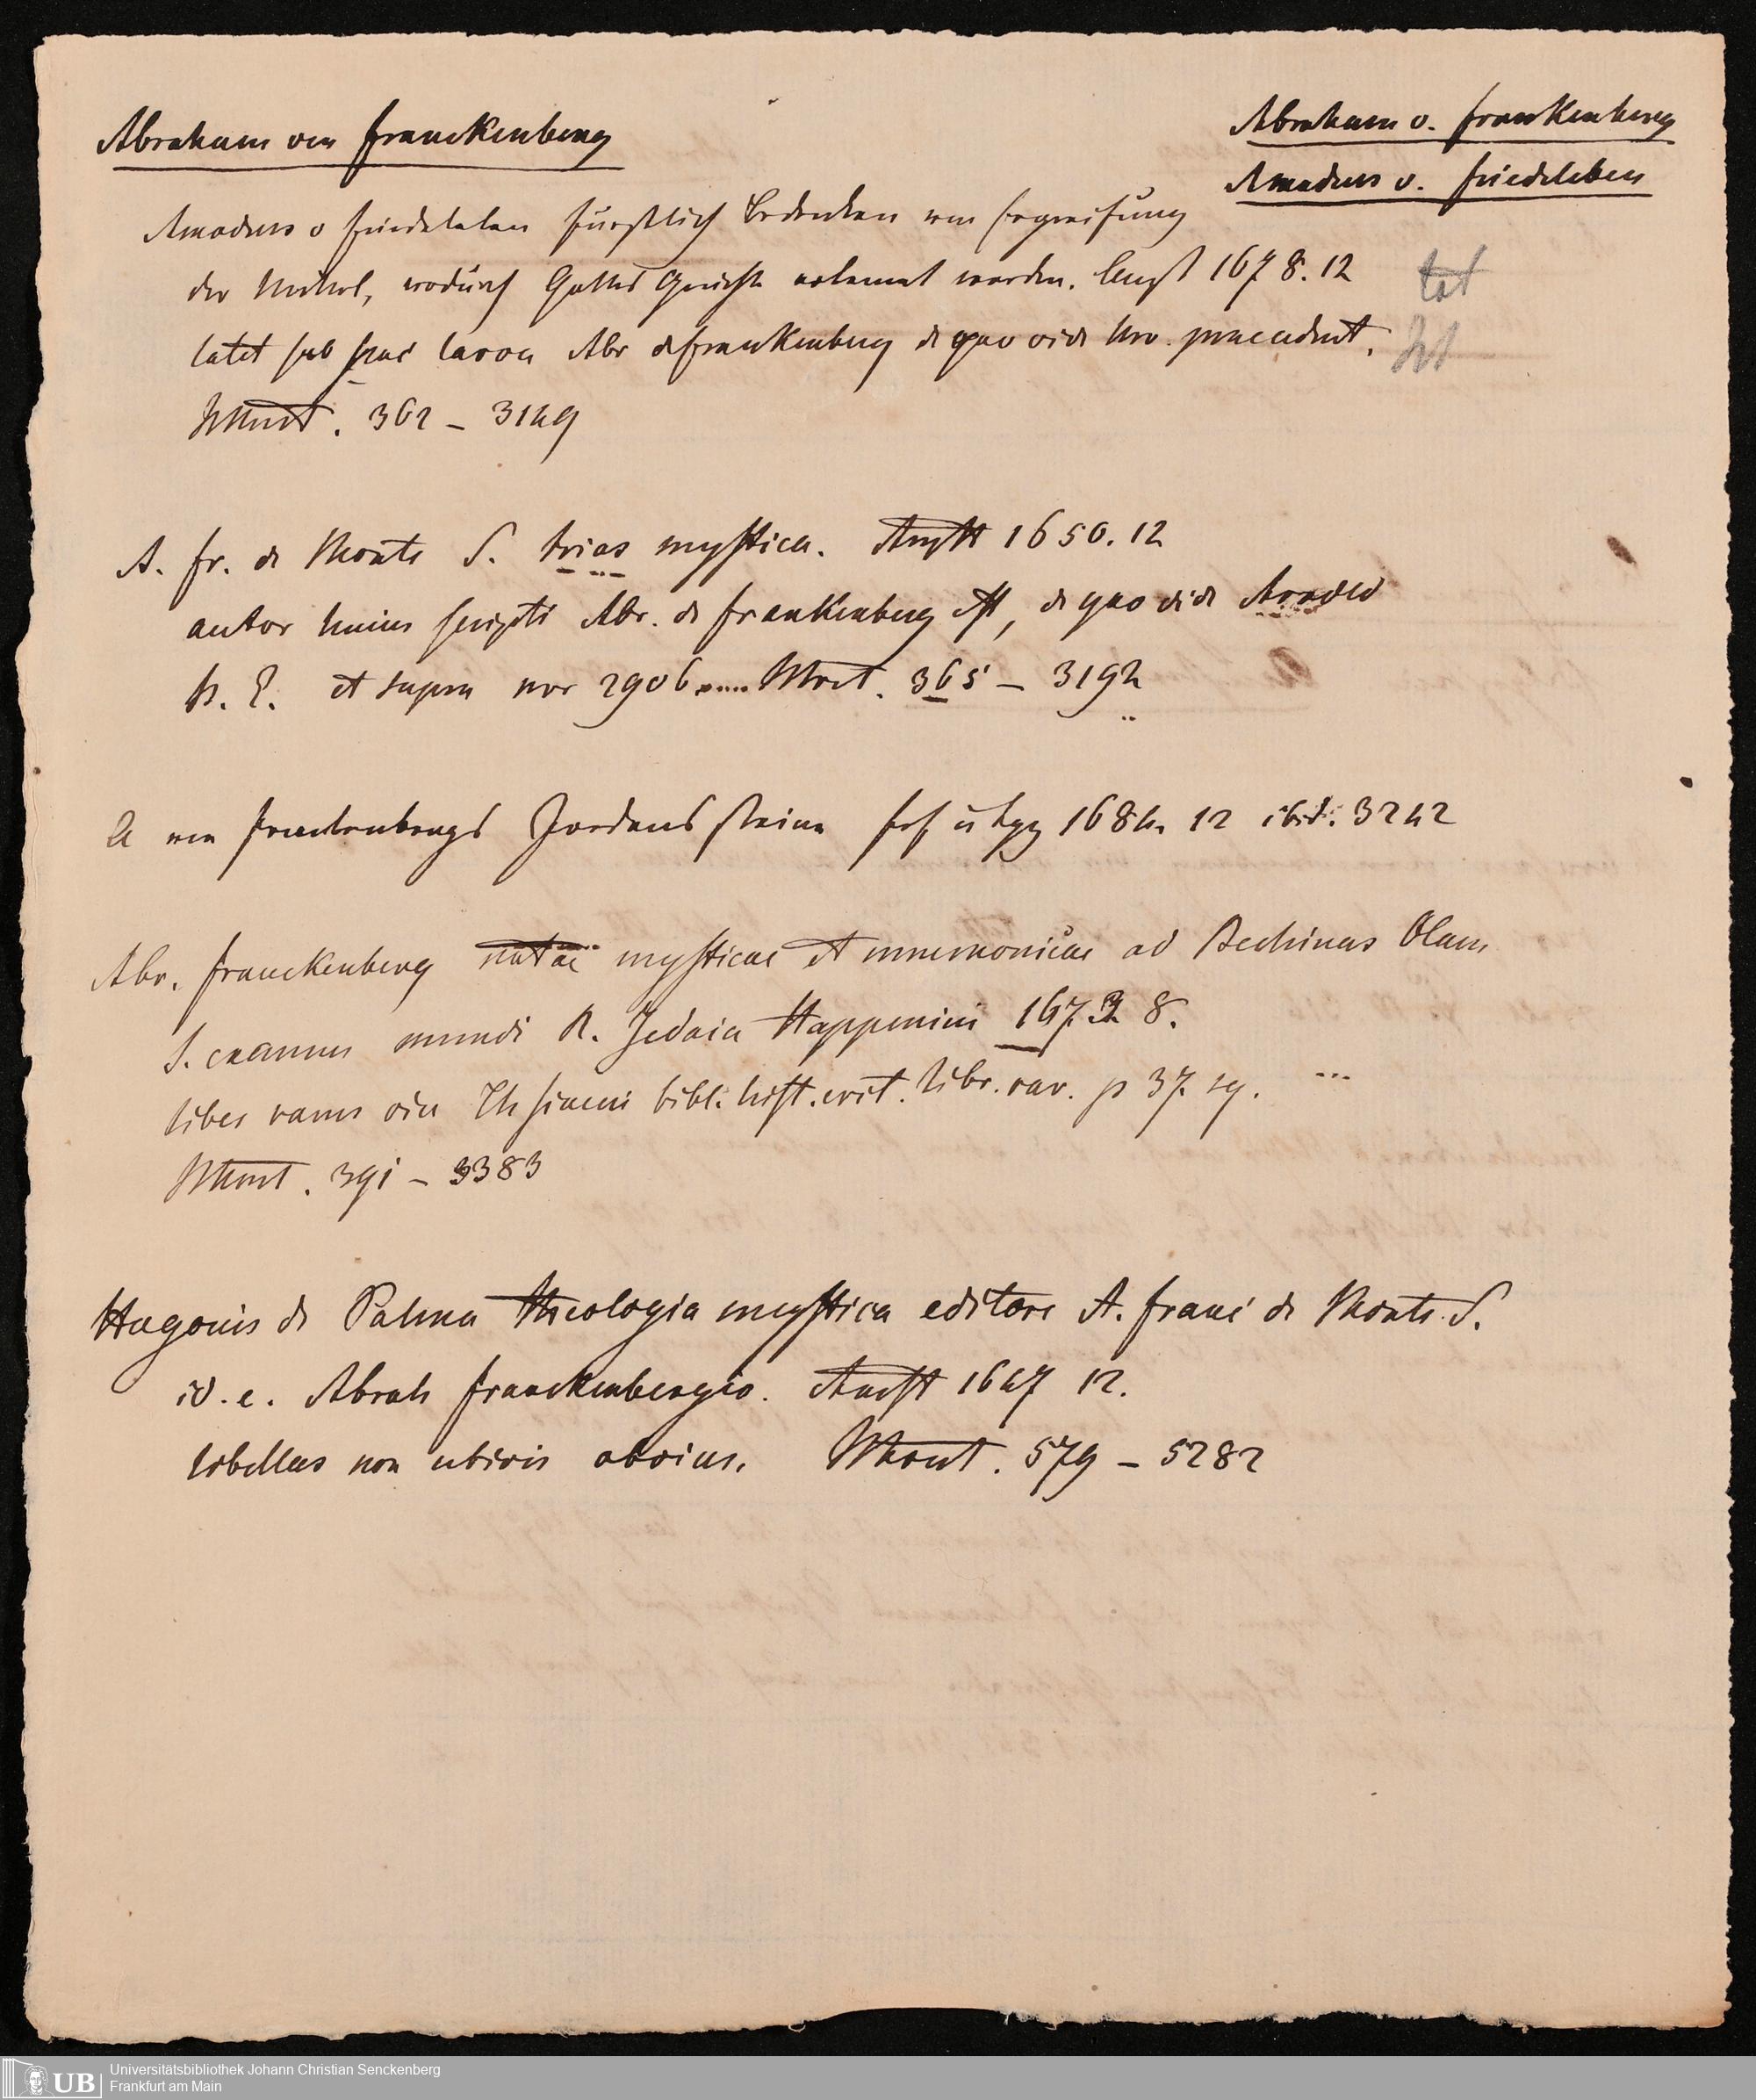 Abraham von Franckenberg
Abraham v. Frankenberg
Amadeus v. Friedeleben
Amadeus v Friedeleben fürstlich Bedenken von Ergreifung
der Mittel, wodurch Gottes Gerichte erkannt werden. Amst 1678. 12
latet sub hac larva Abr de Frankenberg de quo vide Nro. praecedent.
362 – 3149
A. Fr. de Monte S. trias mystica. Amst 1650. 12
autor huius scripti Abr. de Frankenberg est, de quo vide Arnold
K. E. et supra nro 2906 ..... 365 – 3194
A von Frankenbergs Jordans Steine Frf u Lpz 1684. 12 ibid. 3242
Abr. Franckenberg notae mysticae et mnemonicae ad Bechinas Olam
S. examen mundi R. Jedaia Happenini 1673 8.
liber rarus bibl. hist. crit. libr. rar. p 37 sq.
391 – 3383
Hugonis de Palma theologia mystica editore A. Franc de Monte S.
id. e. Abrah Franckenbergio. Amst 1647 12.
libellus non ubivis obvius. 579 – 5282
UB Universitätsbibliothek Johann Christian Senckenberg
Frankfurt am Main